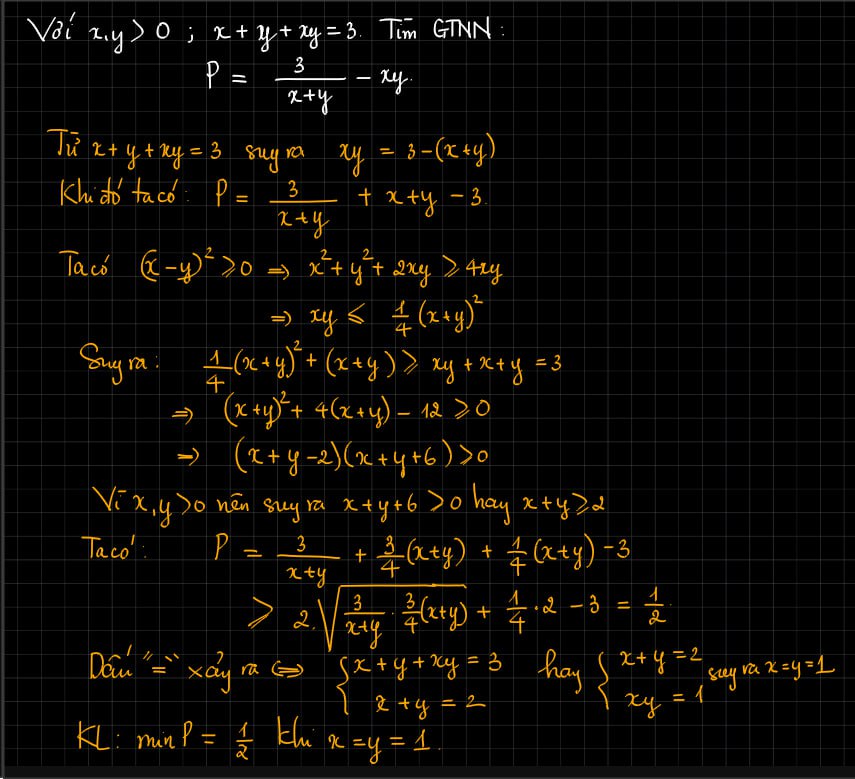 Với x,y > 0 ; x + y + xy = 3. Tìm GTNN :
P = 3/(x+y) − xy.
Từ x + y + xy = 3 suy ra xy = 3 − (x+y)
Khi đó ta có: P = 3/(x+y) + x+y − 3.
Ta có (x−y)² ⩾ 0 ⇒ x² + y² + 2xy ⩾ 4xy
⇒ xy ⩽ 1/4 (x+y)²
Suy ra: 1/4 (x+y)² + (x+y) ⩾ xy + x + y = 3
⇒ (x+y)² + 4(x+y) − 12 ⩾ 0
⇒ (x+y−2)(x+y+6) ⩾ 0
Vì x,y > 0 nên suy ra x+y+6 > 0 hay x+y ⩾ 2
Ta có: P = 3/(x+y) + 3/4 (x+y) + 1/4 (x+y) − 3
⩾ 2.√(3/(x+y) · 3/4 (x+y)) + 1/4 · 2 − 3 = 1/2
Dấu "=" xảy ra ⇔ { x + y + xy = 3 hay { x+y = 2 suy ra x=y=1
x + y = 2 xy = 1
KL: min P = 1/2 khi x = y = 1.